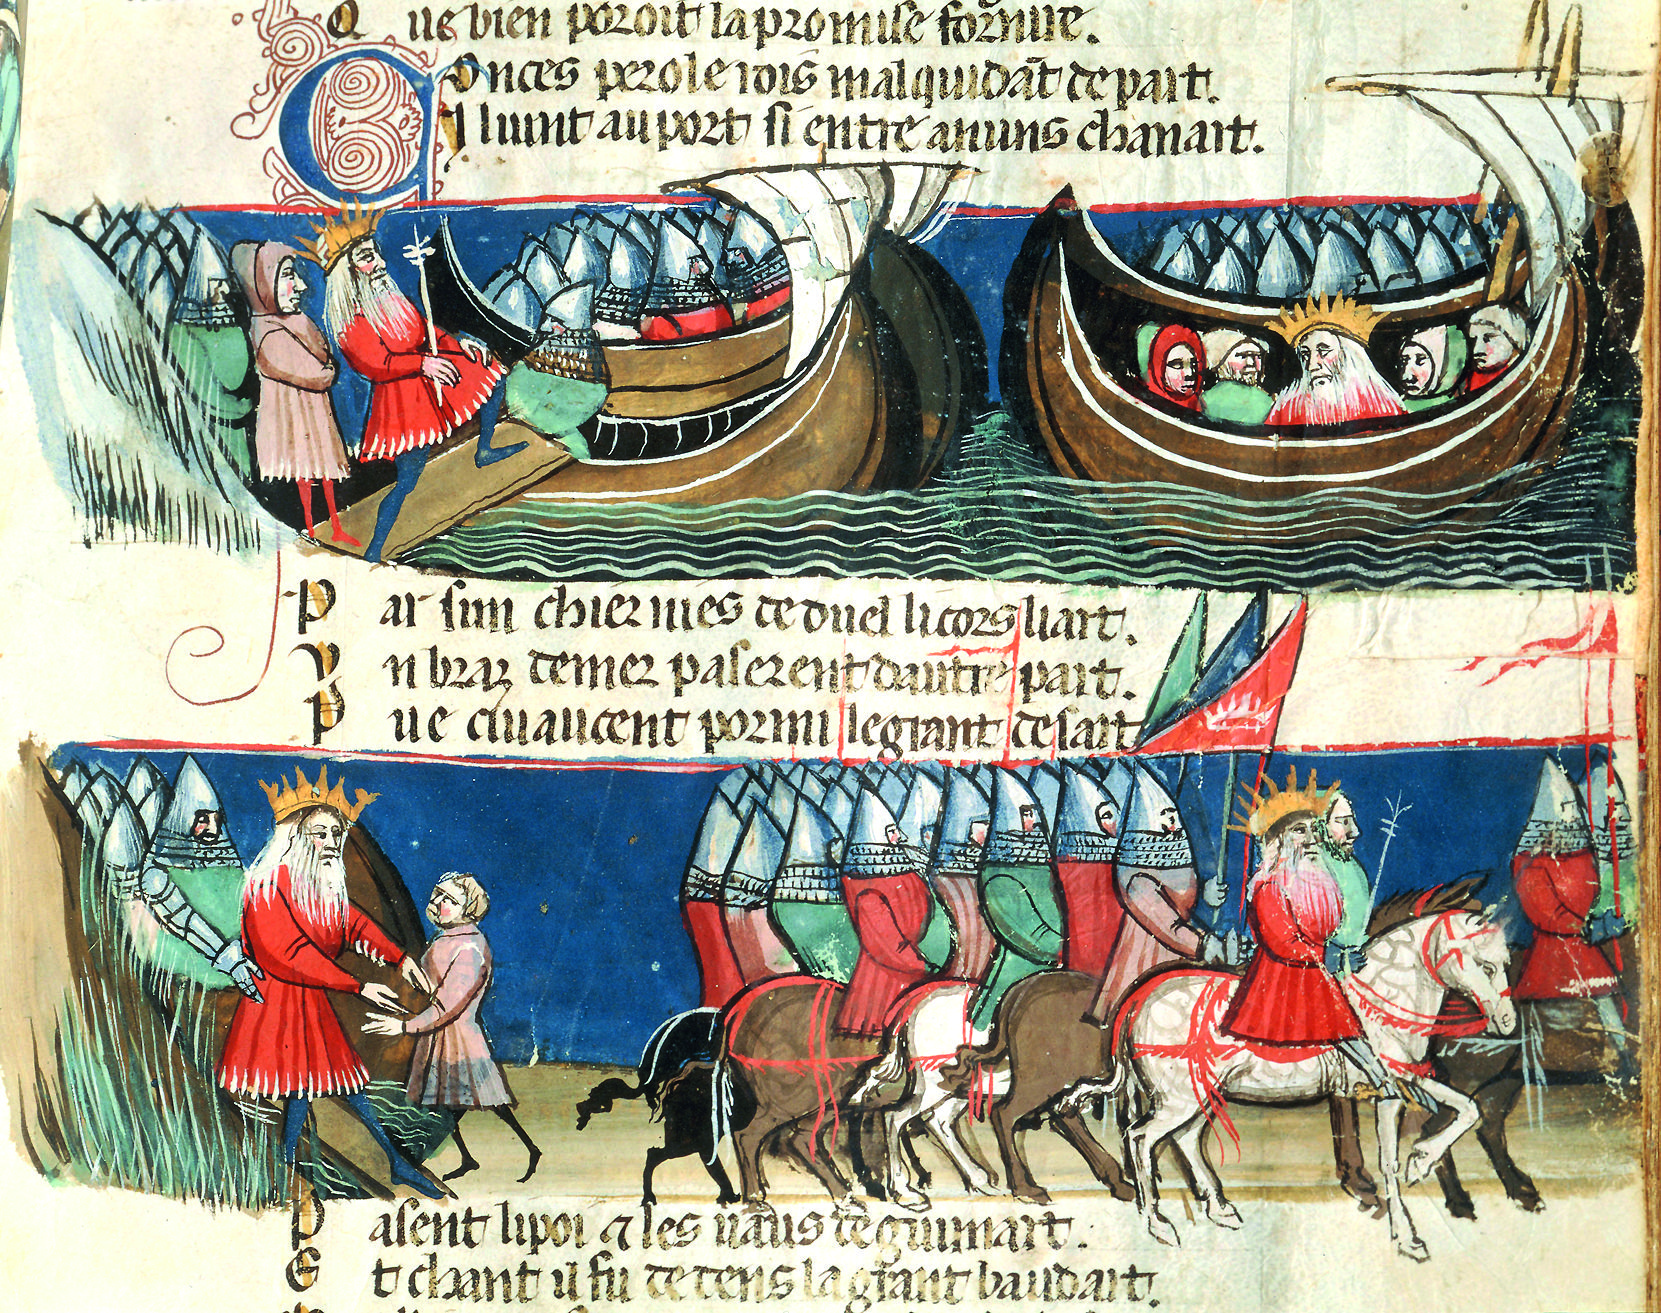 Q ue bien poroit la promise fornire.
C Onces perole rois malquidāt depart.
I luint au port si entre anuns chanart.
P ar sun chier nies de duel li cors li art.
V n braz de mer paserent dautre part.
P ue civaucent por mi le grant desart
P asent li poi ⁊ les uaus de guimart.
E t chant il fu de dens la grant baudart.